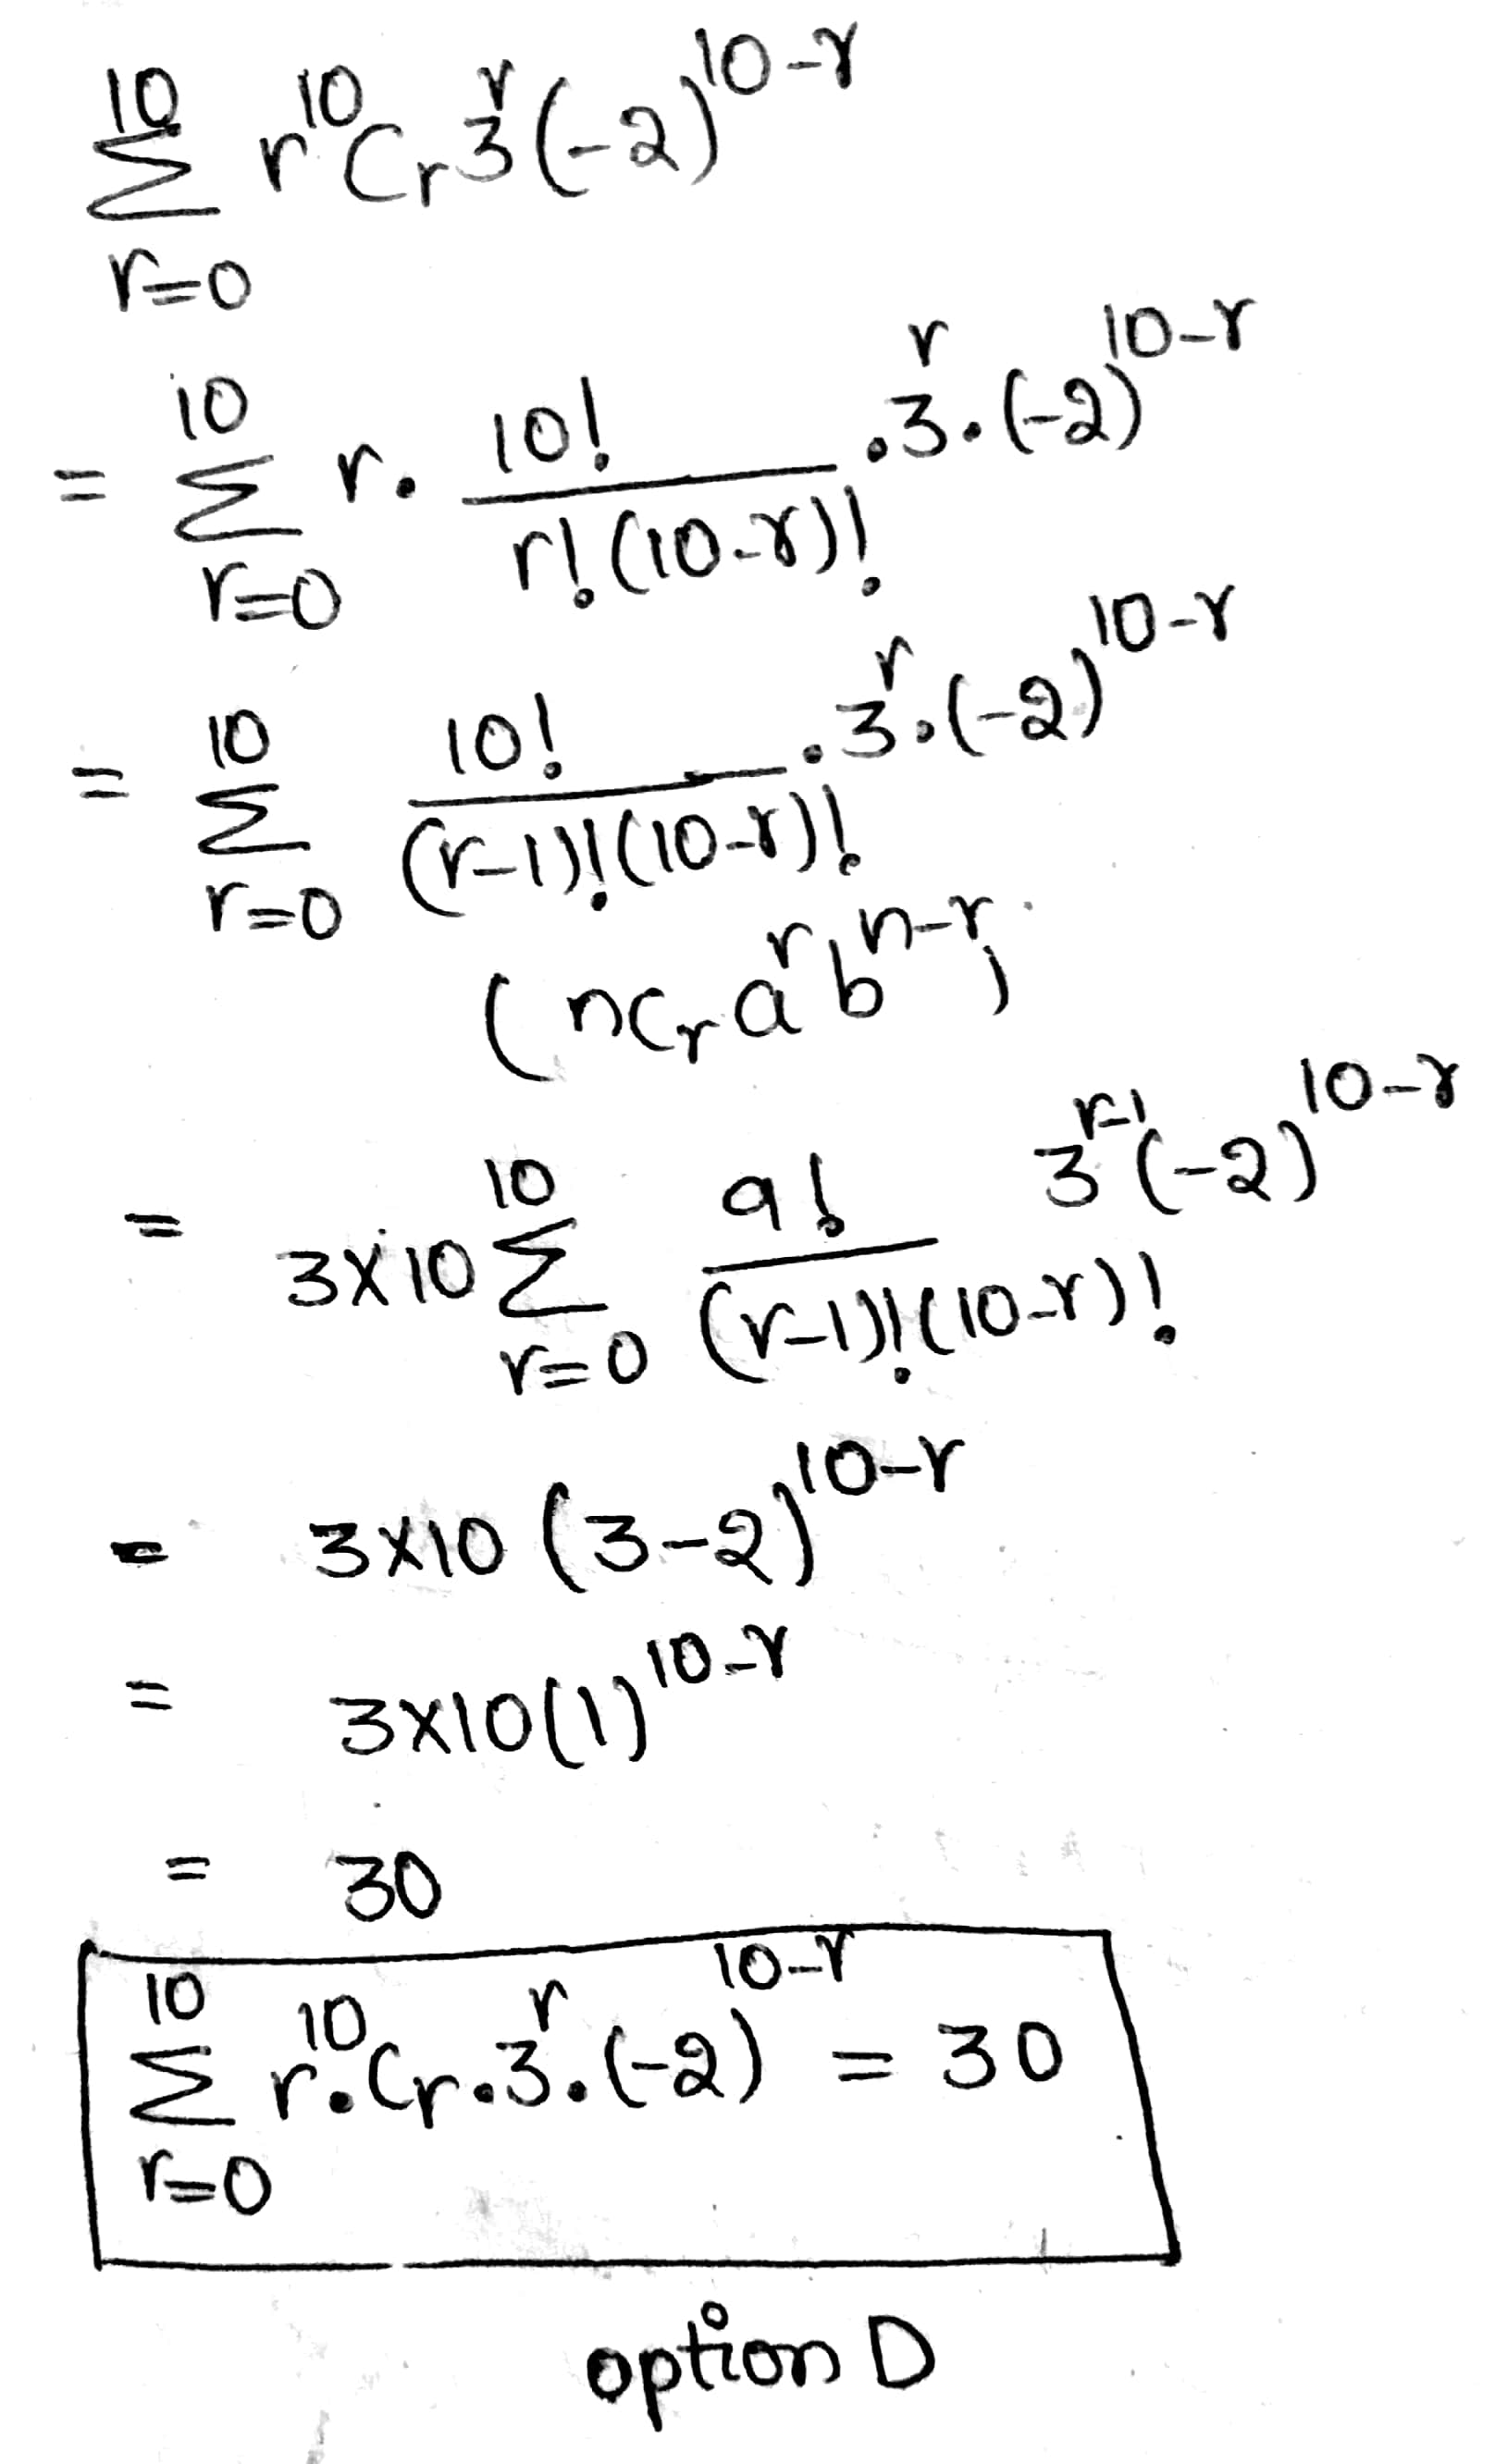 $\sum_{r=0}^{10} r \, {}^{10}C_r 3^r (-2)^{10-r}$
$= \sum_{r=0}^{10} r \cdot \frac{10!}{r!(10-r)!} \cdot 3^r \cdot (-2)^{10-r}$
$= \sum_{r=0}^{10} \frac{10!}{(r-1)!(10-r)!} \cdot 3^r \cdot (-2)^{10-r}$
$(nC_r a^r b^{n-r})$
$= 3 \times 10 \sum_{r=0}^{10} \frac{9!}{(r-1)!(10-r)!} 3^{r-1} (-2)^{10-r}$
$= 3 \times 10 (3-2)^{10-r}$
$= 3 \times 10 (1)^{10-r}$
$= 30$
$\sum_{r=0}^{10} r \cdot {}^{10}C_r \cdot 3^r \cdot (-2)^{10-r} = 30$
option D